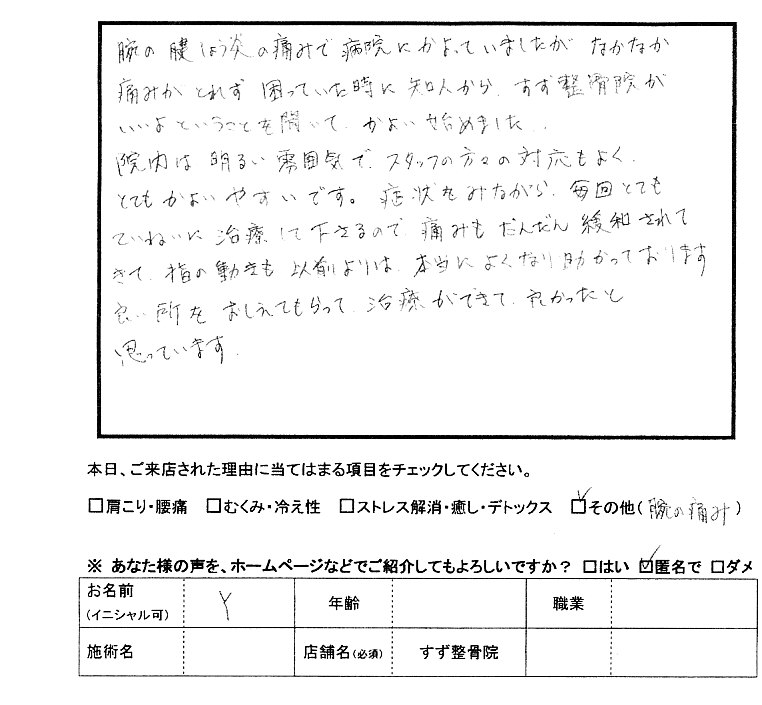 腕の腱しょう炎の痛みで病院にかよっていましたがなかなか
痛みがとれず困っていた時に知人から、すず整骨院が
いいよということを聞いて、かよい始めました。
院内は明るい雰囲気で、スタッフの方々の対応もよく、
とてもかよいやすいです。症状をみながら、毎回とても
ていねいに治療して下さるので、痛みもだんだん緩和されて
きて、指の動きも以前よりは、本当によくなり助かっております
良い所をおしえてもらって、治療ができて、良かったと
思っています。
本日、ご来店された理由に当てはまる項目をチェックしてください。
□肩こり・腰痛 □むくみ・冷え性 □ストレス解消・癒し・デトックス ☑その他(腕の痛み)
※ あなた様の声を、ホームページなどでご紹介してもよろしいですか？ □はい ☑匿名で □ダメ
お名前 Y 年齢 職業
(イニシャル可)
施術名 店舗名(必須) すず整骨院